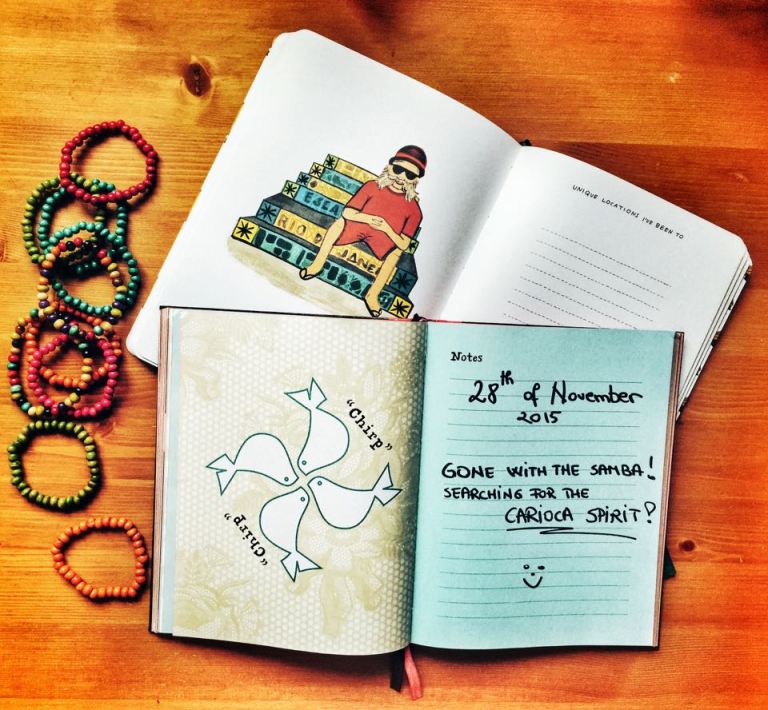 RIO D JANE
UNIQUE LOCATIONS I'VE BEEN TO
"Chirp"
"Chirp"
Notes
28th of November
2015
GONE WITH THE SAMBA!
SEARCHING FOR THE
CARIOCA SPIRIT!